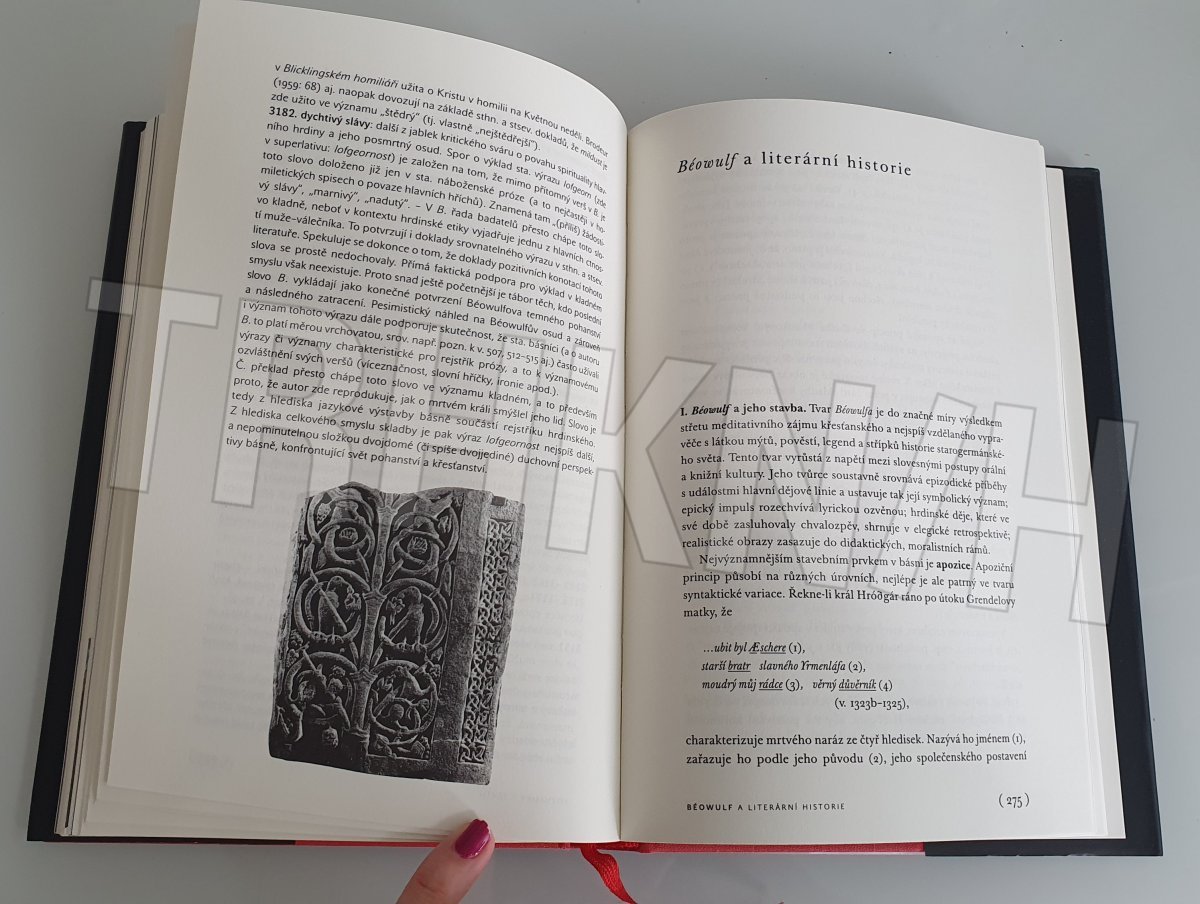 v Blicklingském homiliáři užita o Kristu v homilii na Květnou neděli. Brodeur
(1959: 68) aj. naopak dovozují na základě sthn. a stsev. dokladů, že mildust je
zde užito ve významu „štědrý“ (tj. vlastně „nejštědřejší“).
3182. dychtivý slávy: další z jablek kritického sváru o povahu spirituality hlav-
ního hrdiny a jeho posmrtný osud. Spor o výklad sta. výrazu lofgeorn (zde
v superlativu: lofgeornost) je založen na tom, že mimo přítomný verš v B. je
toto slovo doloženo již jen v sta. náboženské próze (a to nejčastěji v ho-
miletických spisech o povaze hlavních hříchů). Znamená tam „(příliš) žádosti-
vý slávy“, „marnivý“, „nadutý“. – V B. řada badatelů přesto chápe toto slo-
vo kladně, neboť v kontextu hrdinské etiky vyjadřuje jednu z hlavních ctnos-
tí muže-válečníka. To potvrzují i doklady srovnatelného výrazu v sthn. a stsev.
literatuře. Spekuluje se dokonce o tom, že doklady pozitivních konotací tohoto
slova se prostě nedochovaly. Přímá faktická podpora pro výklad v kladném
smyslu však neexistuje. Proto snad ještě početnější je tábor těch, kdo poslední
slovo B. vykládají jako konečné potvrzení Béowulfova temného pohanství
a následného zatracení. Pesimistický náhled na Béowulfův osud a zároveň
i význam tohoto výrazu dále podporuje skutečnost, že sta. básníci (a o autoru
B. to platí měrou vrchovatou, srov. např. pozn. k v. 507, 512–515 aj.) často užívali
výrazy či významy charakteristické pro rejstřík prózy, a to k významovému
ozvláštnění svých veršů (víceznačnost, slovní hříčky, ironie apod.).
Č. překlad přesto chápe toto slovo ve významu kladném, a to především
proto, že autor zde reprodukuje, jak o mrtvém králi smýšlel jeho lid. Slovo je
tedy z hlediska jazykové výstavby básně součástí rejstříku hrdinského.
Z hlediska celkového smyslu skladby je pak výraz lofgeornost nejspíš další,
a nepominutelnou složkou dvojdomé (či spíše dvojjediné) duchovní perspek-
tivy básně, konfrontující svět pohanství a křesťanství.
Béowulf a literární historie
I. Béowulf a jeho stavba. Tvar Béowulfa je do značné míry výsledkem
střetu meditativního zájmu křesťanského a nejspíš vzdělaného vypra-
věče s látkou mýtů, pověstí, legend a střípků historie starogermánské-
ho světa. Tento tvar vyrůstá z napětí mezi slovesnými postupy orální
a knižní kultury. Jeho tvůrce soustavně srovnává epizodické příběhy
s událostmi hlavní dějové linie a ustavuje tak její symbolický význam;
epický impuls rozechvívá lyrickou ozvěnou; hrdinské děje, které ve
své době zasluhovaly chvalozpěv, shrnuje v elegické retrospektivě;
realistické obrazy zasazuje do didaktických, moralistních rámů.
Nejvýznamnějším stavebním prvkem v básni je apozice. Apoziční
princip působí na různých úrovních, nejlépe je ale patrný ve tvaru
syntaktické variace. Řekne-li král Hróðgár ráno po útoku Grendelovy
matky, že
…ubit byl Æschere (1),
starší bratr slavného Yrmenláfa (2),
moudrý můj rádce (3), věrný důvěrník (4)
(v. 1323b–1325),
charakterizuje mrtvého naráz ze čtyř hledisek. Nazývá ho jménem (1),
zařazuje ho podle jeho původu (2), jeho společenského postavení
BÉOWULF A LITERÁRNÍ HISTORIE
( 275 )